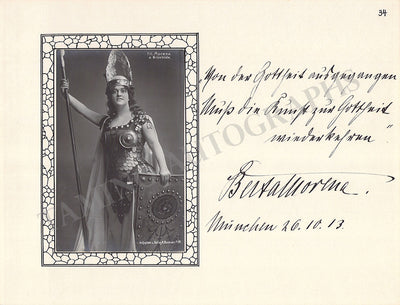 34
Frl. Morena
a. Brünhilde.
„Von der Gottheit ausgegangen
Muß die Kunst zur Gottheit
wiederkehren"
Berta Morena.
München 26.10.13.
TAMINO AUTOGRAPHS